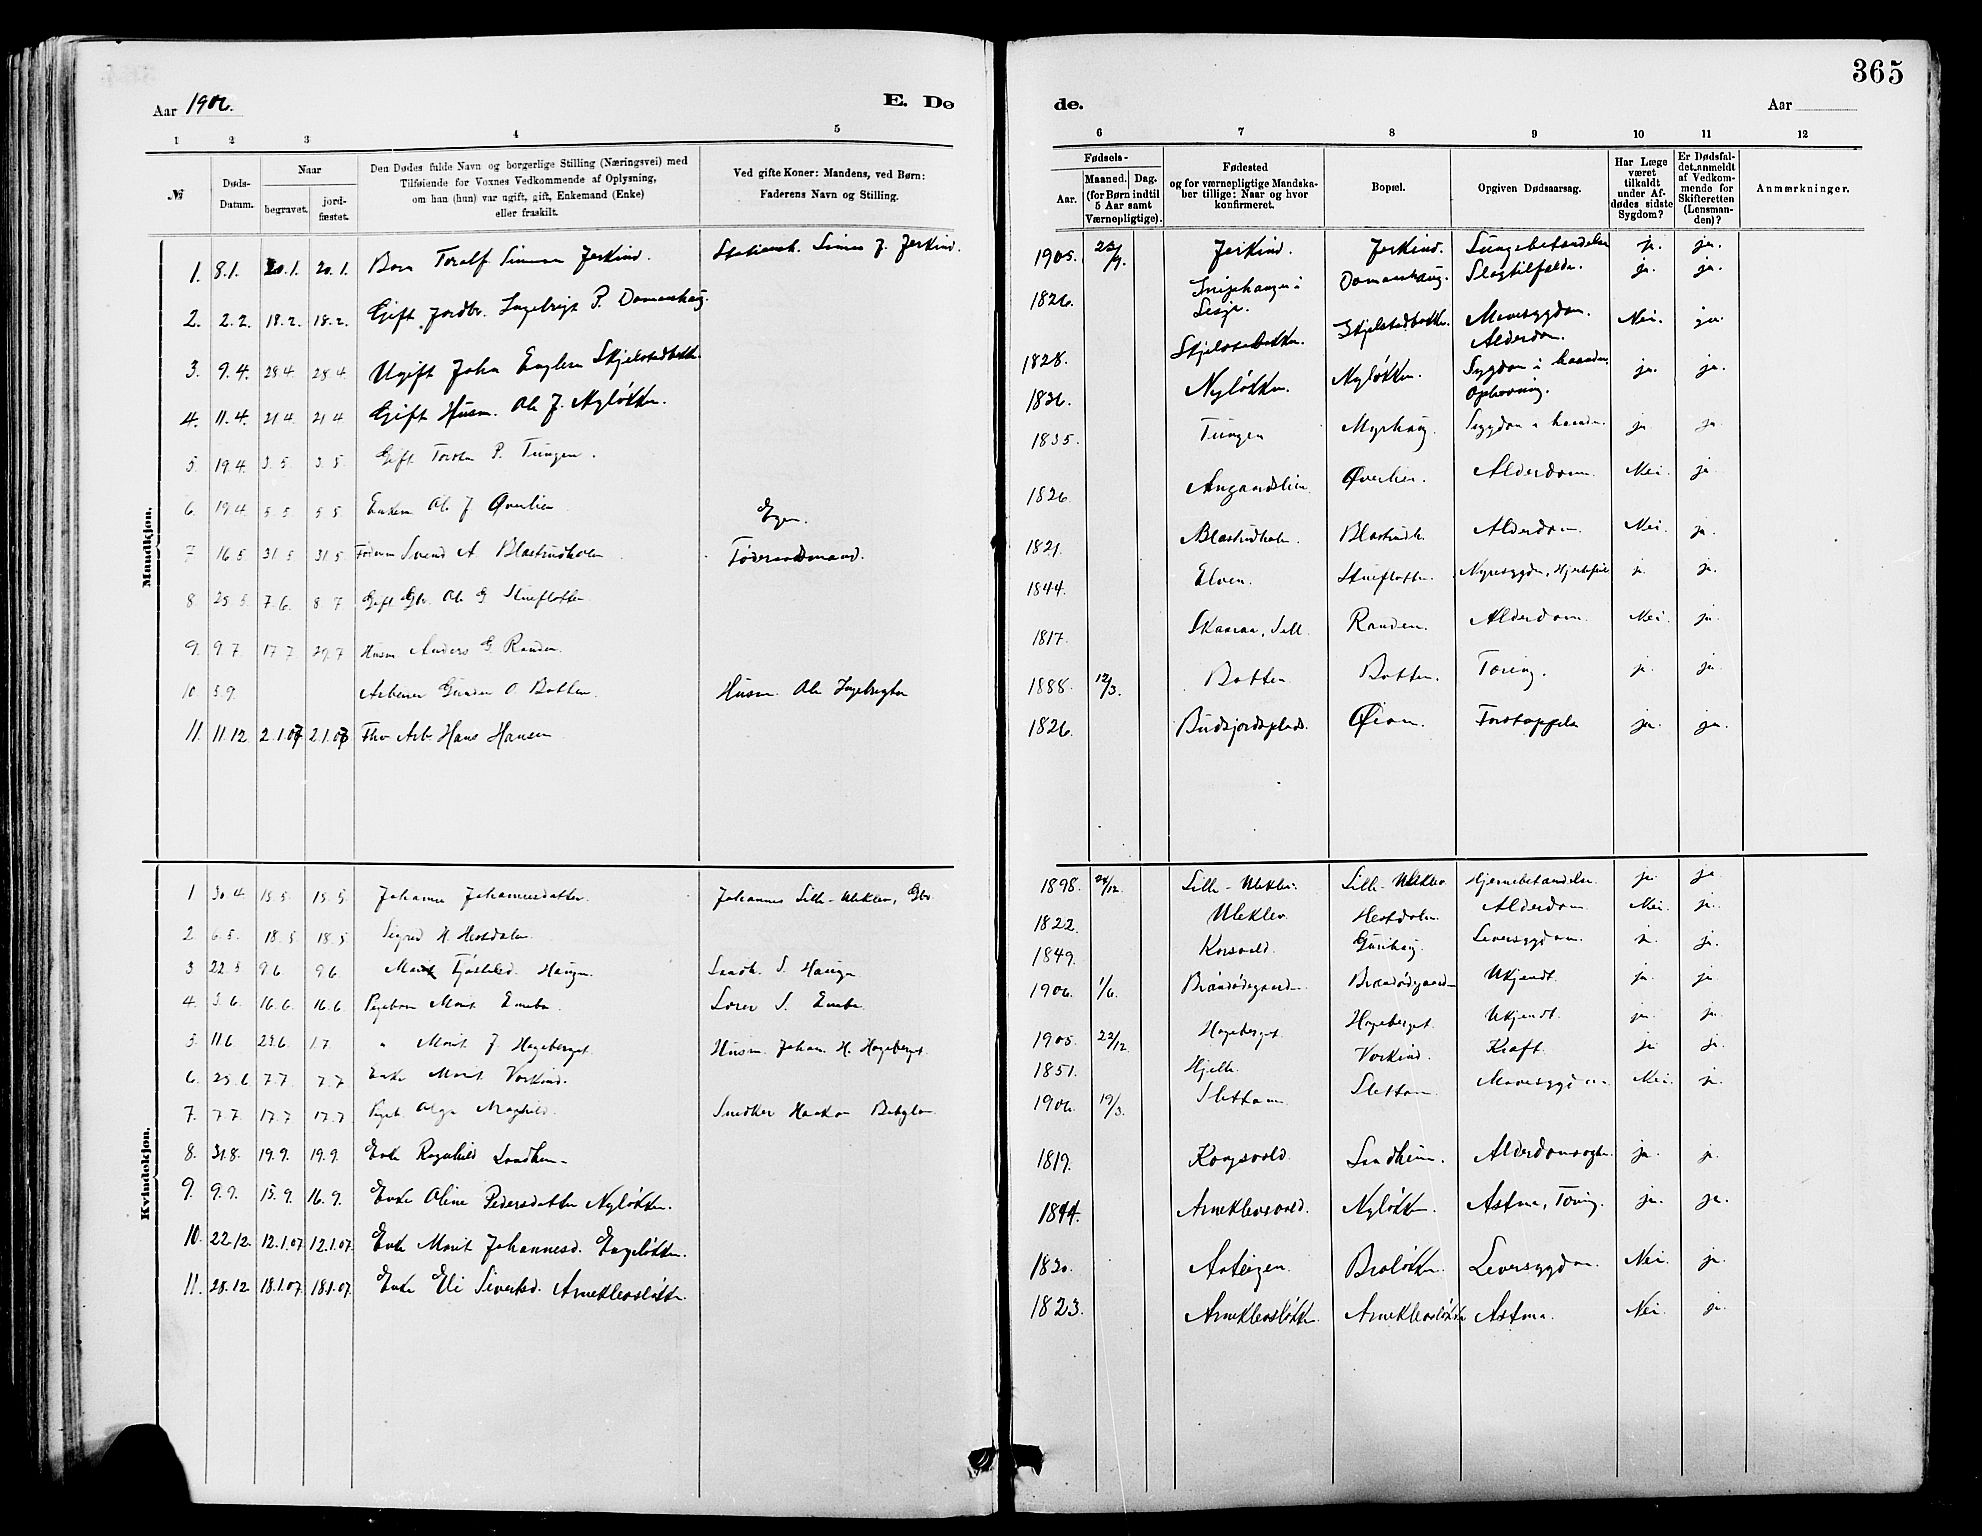 365
Aar 1906. E. Dø de. Aar
1 2 3 4 5 6 7 8 9 10 11 12
№
Døds-Datum.
Naar
begravet. jordfæstet.
Den Dødes fulde Navn og borgerlige Stilling (Næringsvei) med
Tilføiende for Voxnes Vedkommende af Oplysning,
om han (hun) var ugift, gift, Enkemand (Enke)
eller fraskilt.
Ved gifte Koner: Mandens, ved Børn:
Faderens Navn og Stilling.
Fødsels-
Aar. Maaned. Dag.
(for Børn indtil
5 Aar samt
Værnepligtige).
Fødested
og for værnepligtige Mandska-
ber tillige: Naar og hvor
konfirmeret.
Bopæl.
Opgiven Dødsaarsag.
Har Læge
været
tilkaldt
under Af-
dødes sidste
Sygdom?
Er Dødsfal-
det anmeldt
af Vedkom-
mende for
Skifteretten
(Lensman-
den)?
Anmærkninger.
Mandkjøn.
1. 8.1. 20.1. 20.1. Barn Toralf Simen Jerkind. Simen J. Jerkind. 1905. 22/9. Jerkind. Jerkind. Lungebetændelse ja. ja.
2. 2.2. 18.2. 18.2. Gift Jordbr. Ingebrigt P. Domaashaug. 1826. i Lesje. Domaashaug. Slagtilfælde. ja. ja.
3. 9.4. 28 4. 28.4. Ugift John Skjelstadbakk. 1828. Skjelstadbakken. Skjelstadbakken. Mavesygdom. Alderdom. Nei. ja.
4. 11.4. 21 4. 21 4 Gift Husm. Ole J. Nyløkken. 1836. Nyløkken. Nyløkken. Sygdom i ja. ja.
5. 19.4. 3.5. 3.5. Gift Torsten P. Tungen. 1835. Tungen Myrhaug. Sygdom i ja ja
6. 19.4 5.5. 5 5 Enkem Ole J Øverlien 1826 Angaardslien Øverlien. Alderdom. Nei. ja
7 16 5 31 5 31 5 Svend A. Blæstrudholen Egen. Føderaadsmand. 1821. Blæstrudholen. Blæstrudh. Alderdom. Nei. ja.
8 25.5. 7.6. 8 7 Gift Gbr. Ole G Stueflotten 1844. Elven. Stueflotten. Nyresygdom, Hjertefeil ja. ja.
9. 9 7. 17 7 29.7 Husm Anders G. Randen. 1817. Skaaraa, Sell Randen. Alderdom. Nei. ja.
10. 5.9. Arbener Gunder O. Botten. Husm. Ole Ingebrigten 1888. 12/3. Botten Botten. Tæring. ja. ja.
11. 11.12 2.1.07 2.1.07 Arb Hans Hansen 1826. Budsjordsplads. Øien. ja. ja.
Kvindekjøn.
1 30.4 15.5. 15 5. Johanne Johannesdatter. Johannes Lille-Uleklev, Gbr 1898. 24/12. Lille-Uleklev. Lille-Uleklev Hjernebetændelse. ja. ja
2 6.5. 18.5 18.5 Sigrid H. Hestdalen. 1822. Uleklev. Hestdalen. Alderdom. Nei. ja.
3 22.5 9 6 9 6. Marit Haugen. S. Haugen 1849. Gurihaug. Leversygdom. ja. ja.
4. 3.6. 16.6. 16.6 Pigebarn Marit Enebo. Søren S. Enebo 1906. 1/6. Brændødegaard Brændødegaard Ukjendt. ja. ja
5. 11 6 23.6 1.7 " Marit J. Hageberget. Husm Johan. H. Hageberget. 1905. 22/12. Hageberget Hageberget. Ukjendt. ja. ja.
6. 25.6 7.7. 7.7 Enke Marit Vorkind. 1851. Hjelle. Vorkind. Kræft. ja ja.
7. 7.7. 17.7 17.7 Pigeb. Olga Magnhild. Snedker Haakon 1906. 19/3. Slettom Slettom. Mavesygdom Nei ja.
8. 31.8. 19.9. 19.9. Enke Ragnhild Sandhem 1819. Kongsvold. Sandheim. ja. ja.
9. 9.9. 15.9. 16.9. Enke Oline Pedersdatter Nyløkken. 1844. Arneklevsvold. Nyløkken. Astma, Tæring. ja. ja.
10. 22.12. 12.1.07 12.1.07 Enke Marit Johannesd. Engeløkken. 1830. Asteigen. Leversygdom. Nei. ja.
11. 28.12 18.1.07 18.1.07 Enke Eli Sivertsd. Arneklevsløkken. 1823. Arneklevsløkken. Arneklevsløkken Astma. Nei. ja.